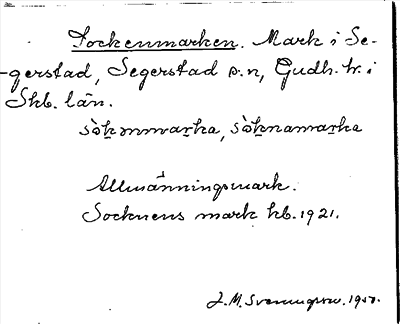 Sockenmarken. Mark i Se-
gerstad, Segerstad s.n, Gudh. hr. i
Skb. län.
sòḵmmarka, sòḵnamarka
Allmänningsmark.
Socknens mark hb. 1921.
J. M. Svenungsson. 1950.